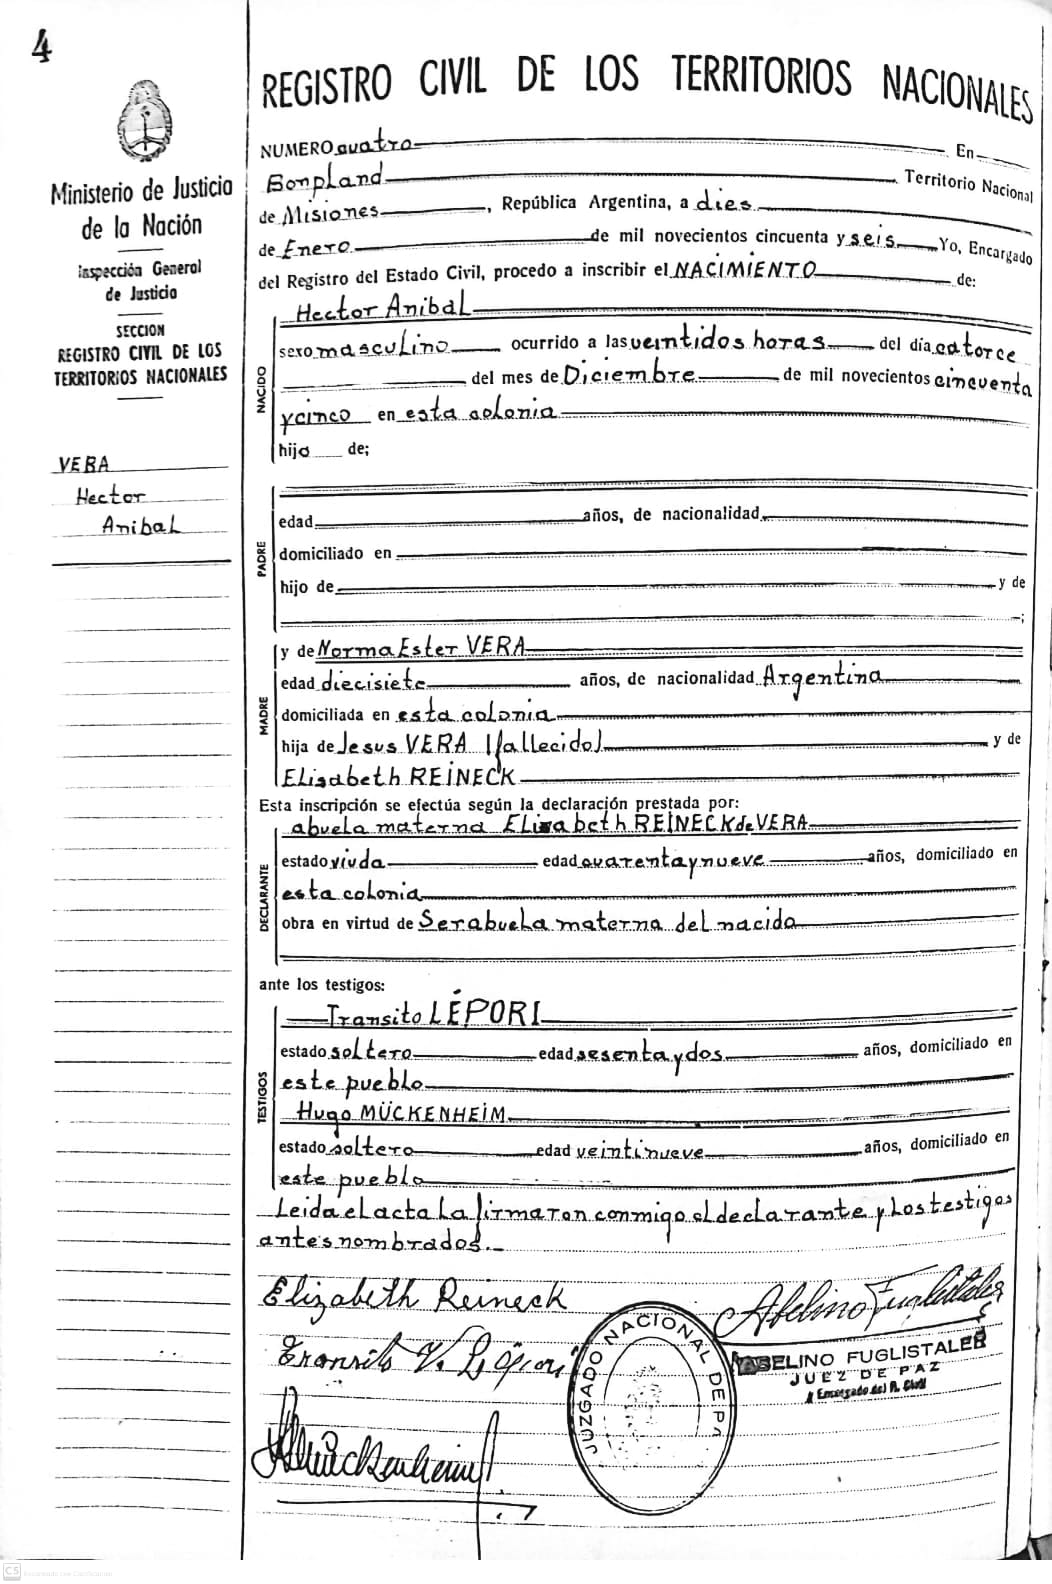 4
Ministerio de Justicia
de la Nación
Inspección General
de Justicia
SECCION
REGISTRO CIVIL DE LOS
TERRITORIOS NACIONALES
VERA
Hector
Anibal
REGISTRO CIVIL DE LOS TERRITORIOS NACIONALES
NUMERO cuatro En
Bonpland Territorio Nacional
de Misiones, República Argentina, a dies
de Enero de mil novecientos cincuenta y seis Yo, Encargado
del Registro del Estado Civil, procedo a inscribir el NACIMIENTO de:
Hector Anibal
NACIDO
sexo masculino ocurrido a las veintidos horas del día catorce
del mes de Diciembre de mil novecientos cincuenta
y cinco en esta colonia
hijo de;
PADRE
edad años, de nacionalidad
domiciliado en
hijo de y de
;
MADRE
y de Norma Ester VERA
edad diecisiete años, de nacionalidad Argentina
domiciliada en esta colonia
hija de Jesus VERA (fallecido) y de
Elisabeth REINECK
Esta inscripción se efectúa según la declaración prestada por:
abuela materna Elisabeth REINECK de VERA
DECLARANTE
estado viuda edad cuarenta y nueve años, domiciliado en
esta colonia
obra en virtud de Ser abuela materna del nacido
ante los testigos:
TESTIGOS
Transito LÉPORI
estado soltero edad sesenta y dos años, domiciliado en
este pueblo
Hugo MÜCKENHEIM
estado soltero edad veintinueve años, domiciliado en
este pueblo
Leida el acta la firmaron conmigo el declarante y los testigos
antes nombrados.
Elizabeth Reineck
Abelino Fuglistaler
Transito V. Lépori
ABELINO FUGLISTALER
JUEZ DE PAZ
y Encargado del R. Civil
JUZGADO NACIONAL DE PAZ
HMückenheim
CS Escaneado con CamScanner